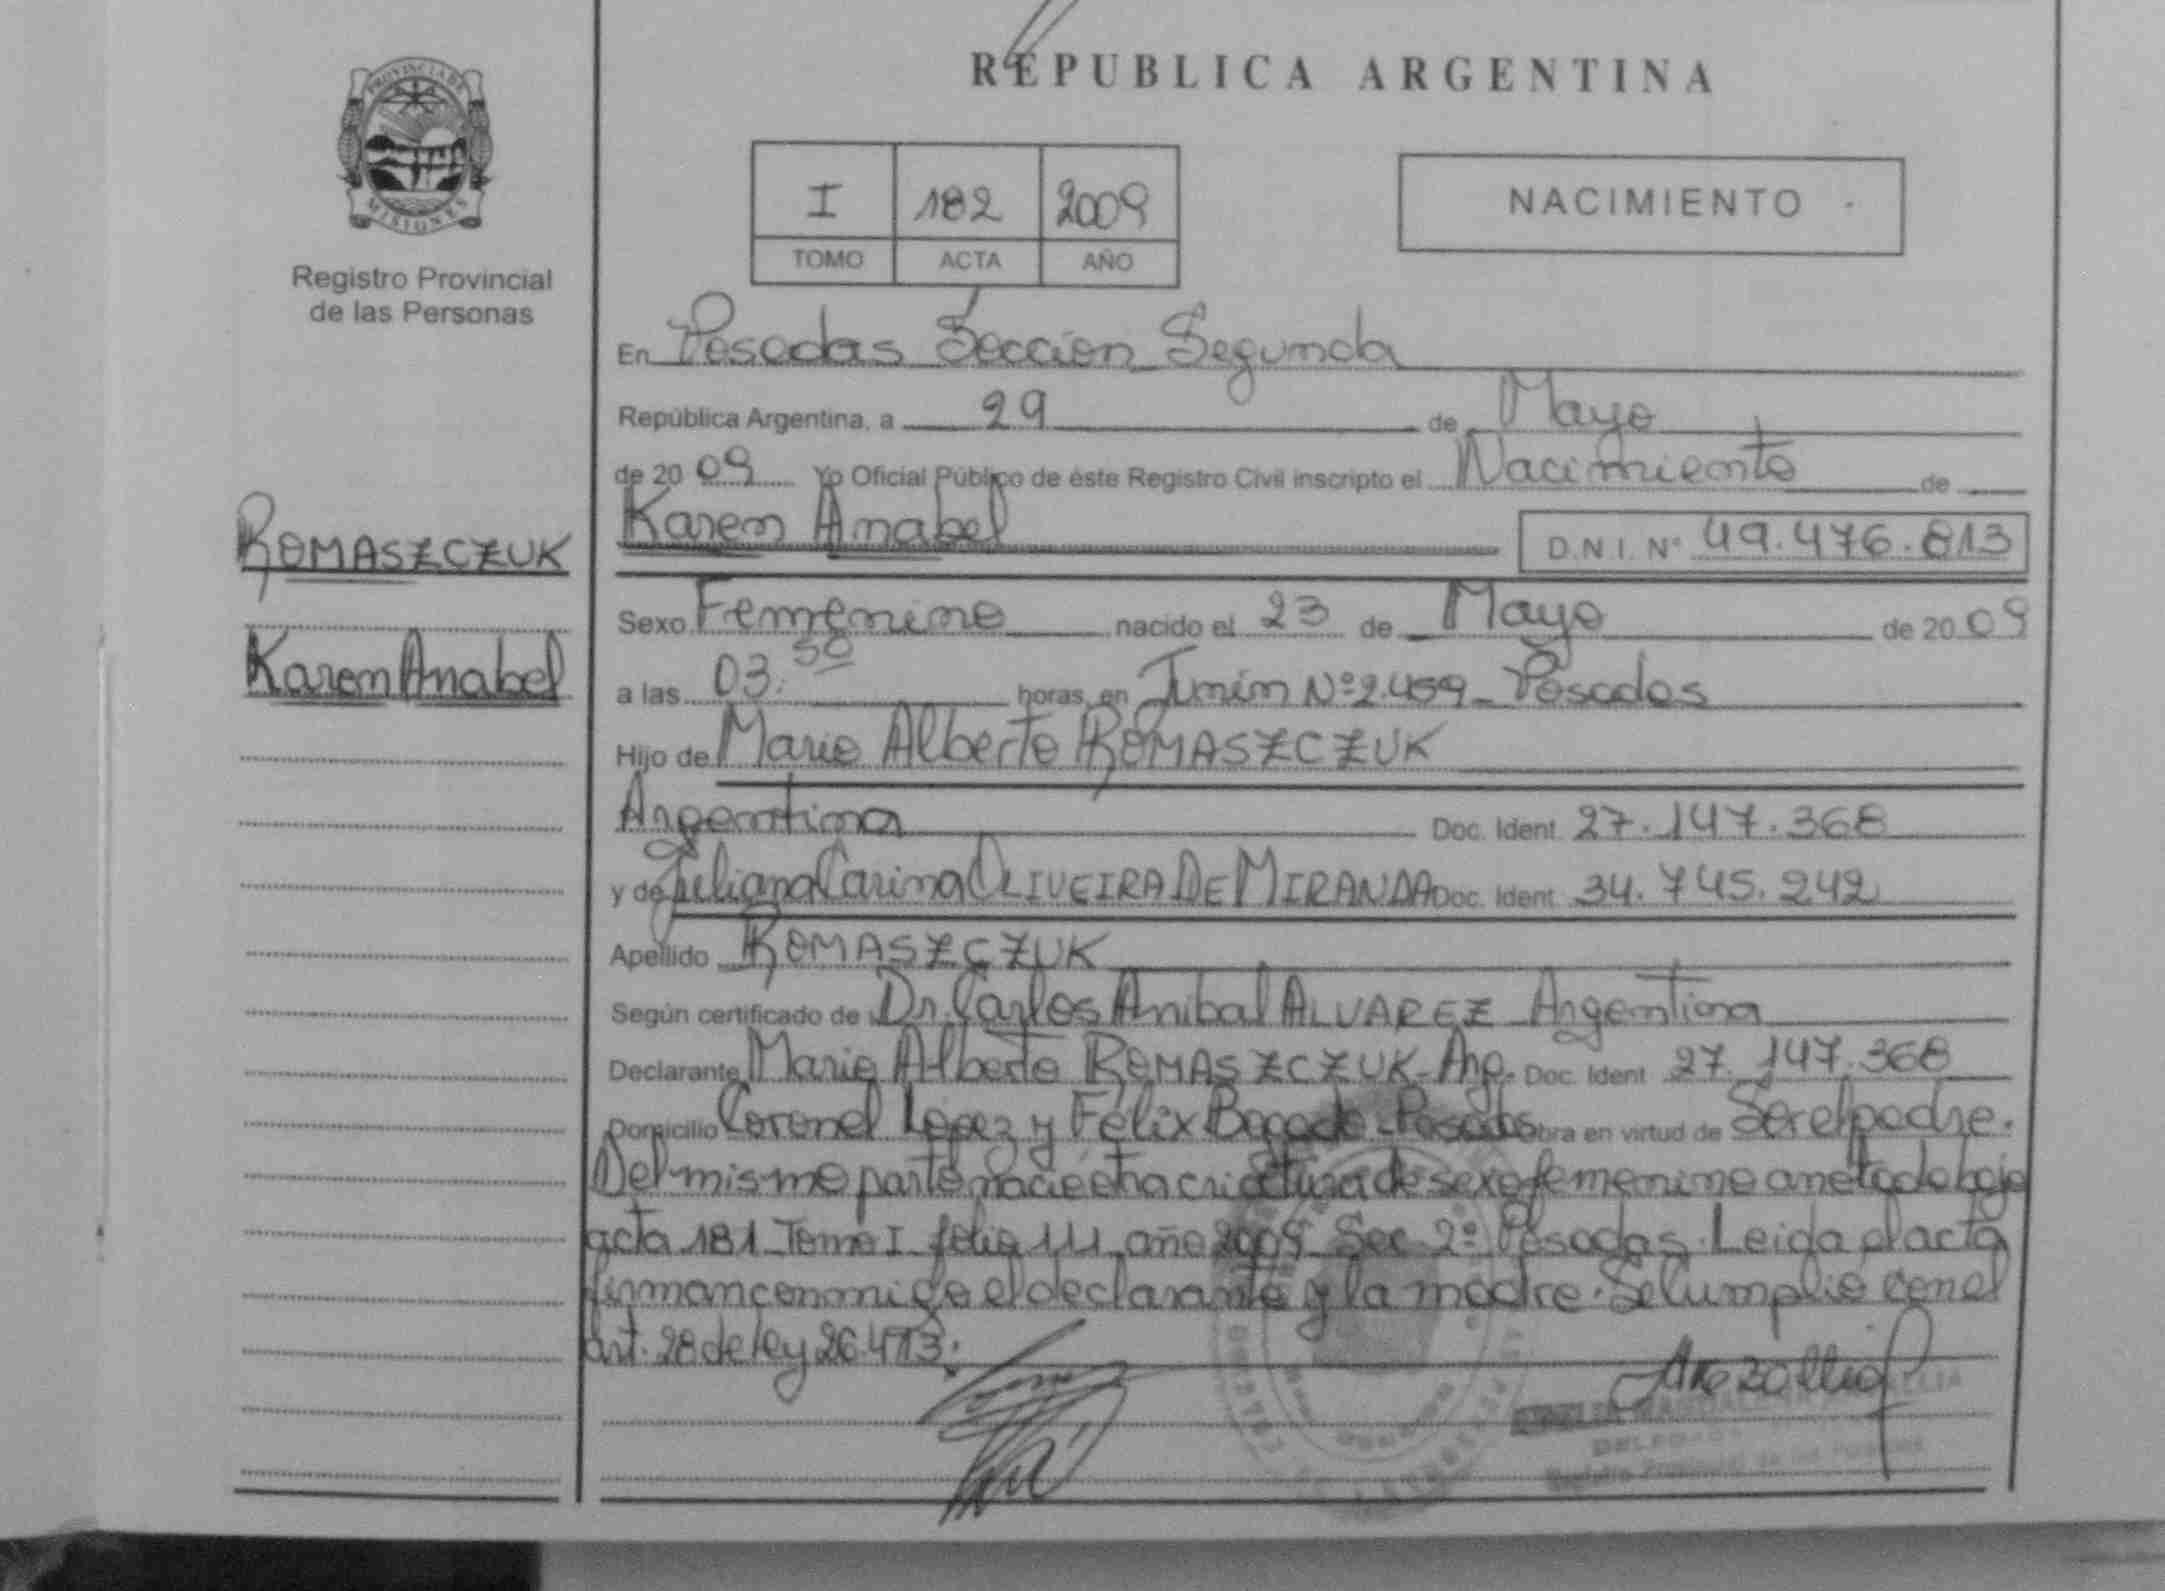 PROVINCIA DE
MISIONES
Registro Provincial
de las Personas
REPUBLICA ARGENTINA
I 182 2009
TOMO ACTA AÑO
NACIMIENTO
En Posadas Sección Segunda
República Argentina, a 29 de Mayo
de 20 09 Yo Oficial Público de éste Registro Civil inscripto el Nacimiento de
Karen Anabel D.N.I. N° 49.476.813
ROMASZCZUK
Karen Anabel
Sexo Femenino nacido el 23 de Mayo de 20 09
a las 03:50 horas, en Junín Nº 2.459 - Posadas
Hijo de Mario Alberto ROMASZCZUK
Argentina Doc. Ident. 27.147.368
y de Juliana Carina OLIVEIRA DE MIRANDA Doc. Ident. 34.745.242
Apellido ROMASZCZUK
Según certificado de Dr. Carlos Anibal ALVAREZ Argentina
Declarante Mario Alberto ROMASZCZUK - Arg. Doc. Ident. 27.147.368
Domicilio Coronel Lopez y Félix Bogado - Posadas Obra en virtud de Ser el padre.
Del mismo parto nacio otra criatura de sexo femenino anotado bajo
acta 181 Tomo I folio 111 año 2009 Sec 2º Posadas. Leida el acta
firman conmigo el declarante y la madre. Se Cumplio con el
art. 28 de ley 26.413.
MAGDALENA
Registro Provincial de las Personas